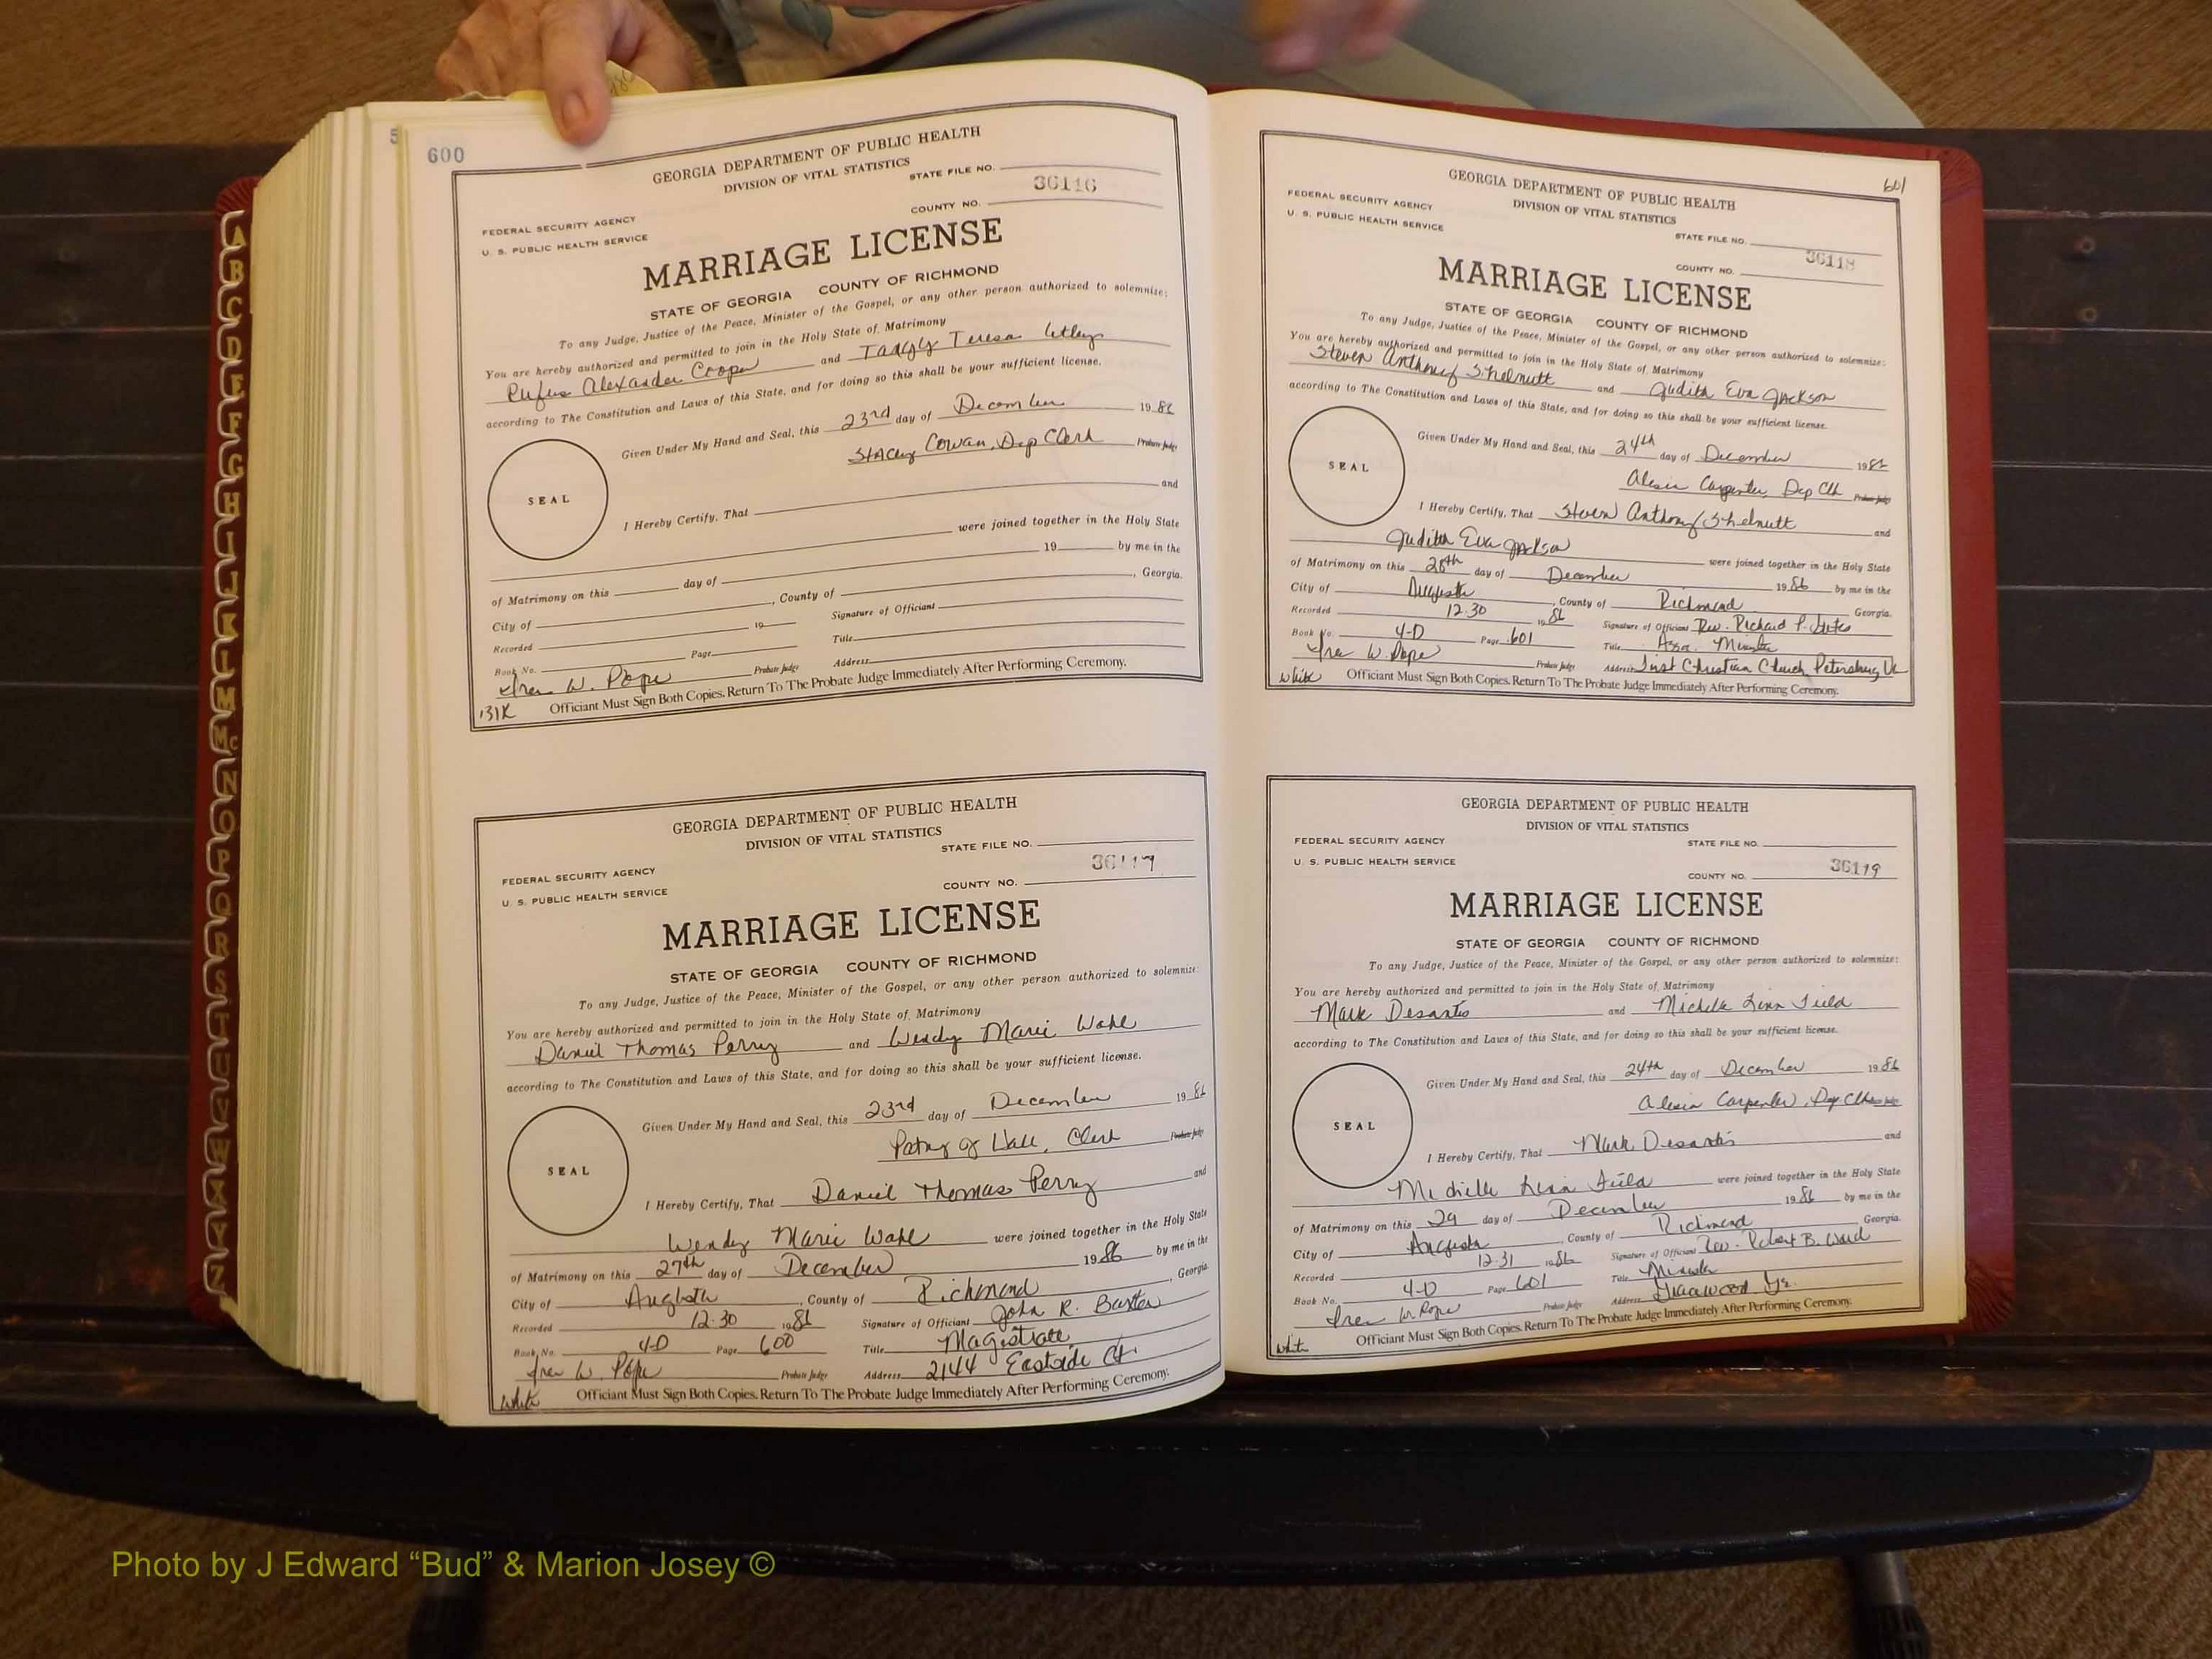 600
GEORGIA DEPARTMENT OF PUBLIC HEALTH
DIVISION OF VITAL STATISTICS
STATE FILE NO.
36116
FEDERAL SECURITY AGENCY
COUNTY NO.
U. S. PUBLIC HEALTH SERVICE
MARRIAGE LICENSE
STATE OF GEORGIA COUNTY OF RICHMOND
To any Judge, Justice of the Peace, Minister of the Gospel, or any other person authorized to solemnize:
You are hereby authorized and permitted to join in the Holy State of Matrimony
Rufus Alexander Cooper and Teresa Utley
according to The Constitution and Laws of this State, and for doing so this shall be your sufficient license.
Given Under My Hand and Seal, this 23rd day of December 1986
Stacey Cowan, Dep Clerk Probate Judge
SEAL
I Hereby Certify, That and
were joined together in the Holy State
of Matrimony on this day of 19 by me in the
City of , County of , Georgia.
Recorded 19 Signature of Officiant
Book No. Page Title
Ires W. Pope Probate Judge Address
131K Officiant Must Sign Both Copies. Return To The Probate Judge Immediately After Performing Ceremony.
GEORGIA DEPARTMENT OF PUBLIC HEALTH
DIVISION OF VITAL STATISTICS
STATE FILE NO.
36117
FEDERAL SECURITY AGENCY
COUNTY NO.
U. S. PUBLIC HEALTH SERVICE
MARRIAGE LICENSE
STATE OF GEORGIA COUNTY OF RICHMOND
To any Judge, Justice of the Peace, Minister of the Gospel, or any other person authorized to solemnize:
You are hereby authorized and permitted to join in the Holy State of Matrimony
Daniel Thomas Perry and Wendy Marie Wahl
according to The Constitution and Laws of this State, and for doing so this shall be your sufficient license.
Given Under My Hand and Seal, this 23rd day of December 1986
Patsy G Hall, Clerk Probate Judge
SEAL
I Hereby Certify, That Daniel Thomas Perry and
Wendy Marie Wahl were joined together in the Holy State
of Matrimony on this 27th day of December 1986 by me in the
City of Augusta , County of Richmond , Georgia.
Recorded 12-30 1986 Signature of Officiant John R. Baxter
Book No. 4-D Page 600 Title Magistrate
Ires W. Pope Probate Judge Address 2144 Eastside Ct.
White Officiant Must Sign Both Copies. Return To The Probate Judge Immediately After Performing Ceremony.
601
GEORGIA DEPARTMENT OF PUBLIC HEALTH
DIVISION OF VITAL STATISTICS
FEDERAL SECURITY AGENCY
U. S. PUBLIC HEALTH SERVICE
STATE FILE NO.
36118
COUNTY NO.
MARRIAGE LICENSE
STATE OF GEORGIA COUNTY OF RICHMOND
To any Judge, Justice of the Peace, Minister of the Gospel, or any other person authorized to solemnize:
You are hereby authorized and permitted to join in the Holy State of Matrimony
Steven Anthony Shelnutt and Judith Eva Jackson
according to The Constitution and Laws of this State, and for doing so this shall be your sufficient license.
Given Under My Hand and Seal, this 24th day of December 1986
Alesia Carpenter, Dep Clk Probate Judge
SEAL
I Hereby Certify, That Steven Anthony Shelnutt and
Judith Eva Jackson were joined together in the Holy State
of Matrimony on this 28th day of December 1986 by me in the
City of Augusta , County of Richmond Georgia.
Recorded 12-30 1986 Signature of Officiant Rev. Richard P.
Book No. 4-D Page 601 Title Asso. Minister
Ires W. Pope Probate Judge Address First Christian Church, Petersburg Va
White Officiant Must Sign Both Copies. Return To The Probate Judge Immediately After Performing Ceremony.
GEORGIA DEPARTMENT OF PUBLIC HEALTH
DIVISION OF VITAL STATISTICS
FEDERAL SECURITY AGENCY
STATE FILE NO.
U. S. PUBLIC HEALTH SERVICE
36119
COUNTY NO.
MARRIAGE LICENSE
STATE OF GEORGIA COUNTY OF RICHMOND
To any Judge, Justice of the Peace, Minister of the Gospel, or any other person authorized to solemnize:
You are hereby authorized and permitted to join in the Holy State of Matrimony
Mark Desantis and Michelle Linn Field
according to The Constitution and Laws of this State, and for doing so this shall be your sufficient license.
Given Under My Hand and Seal, this 24th day of December 1986
Alesia Carpenter, Dep. Clk Probate Judge
SEAL
I Hereby Certify, That Mark Desantis and
Michelle Linn Field were joined together in the Holy State
of Matrimony on this 29 day of December 1986 by me in the
City of Augusta , County of Richmond Georgia.
Recorded 12-31 1986 Signature of Officiant Rev. Robert B. Ward
Book No. 4-D Page 601 Title Minister
Ires W. Pope Probate Judge Address Ga.
White Officiant Must Sign Both Copies. Return To The Probate Judge Immediately After Performing Ceremony.
A
B
C
D
E
F
G
H
I
J
K
L
M
Mc
N
O
P
Q
R
S
T
U
V
W
X
Y
Z
Photo by J Edward “Bud” & Marion Josey ©